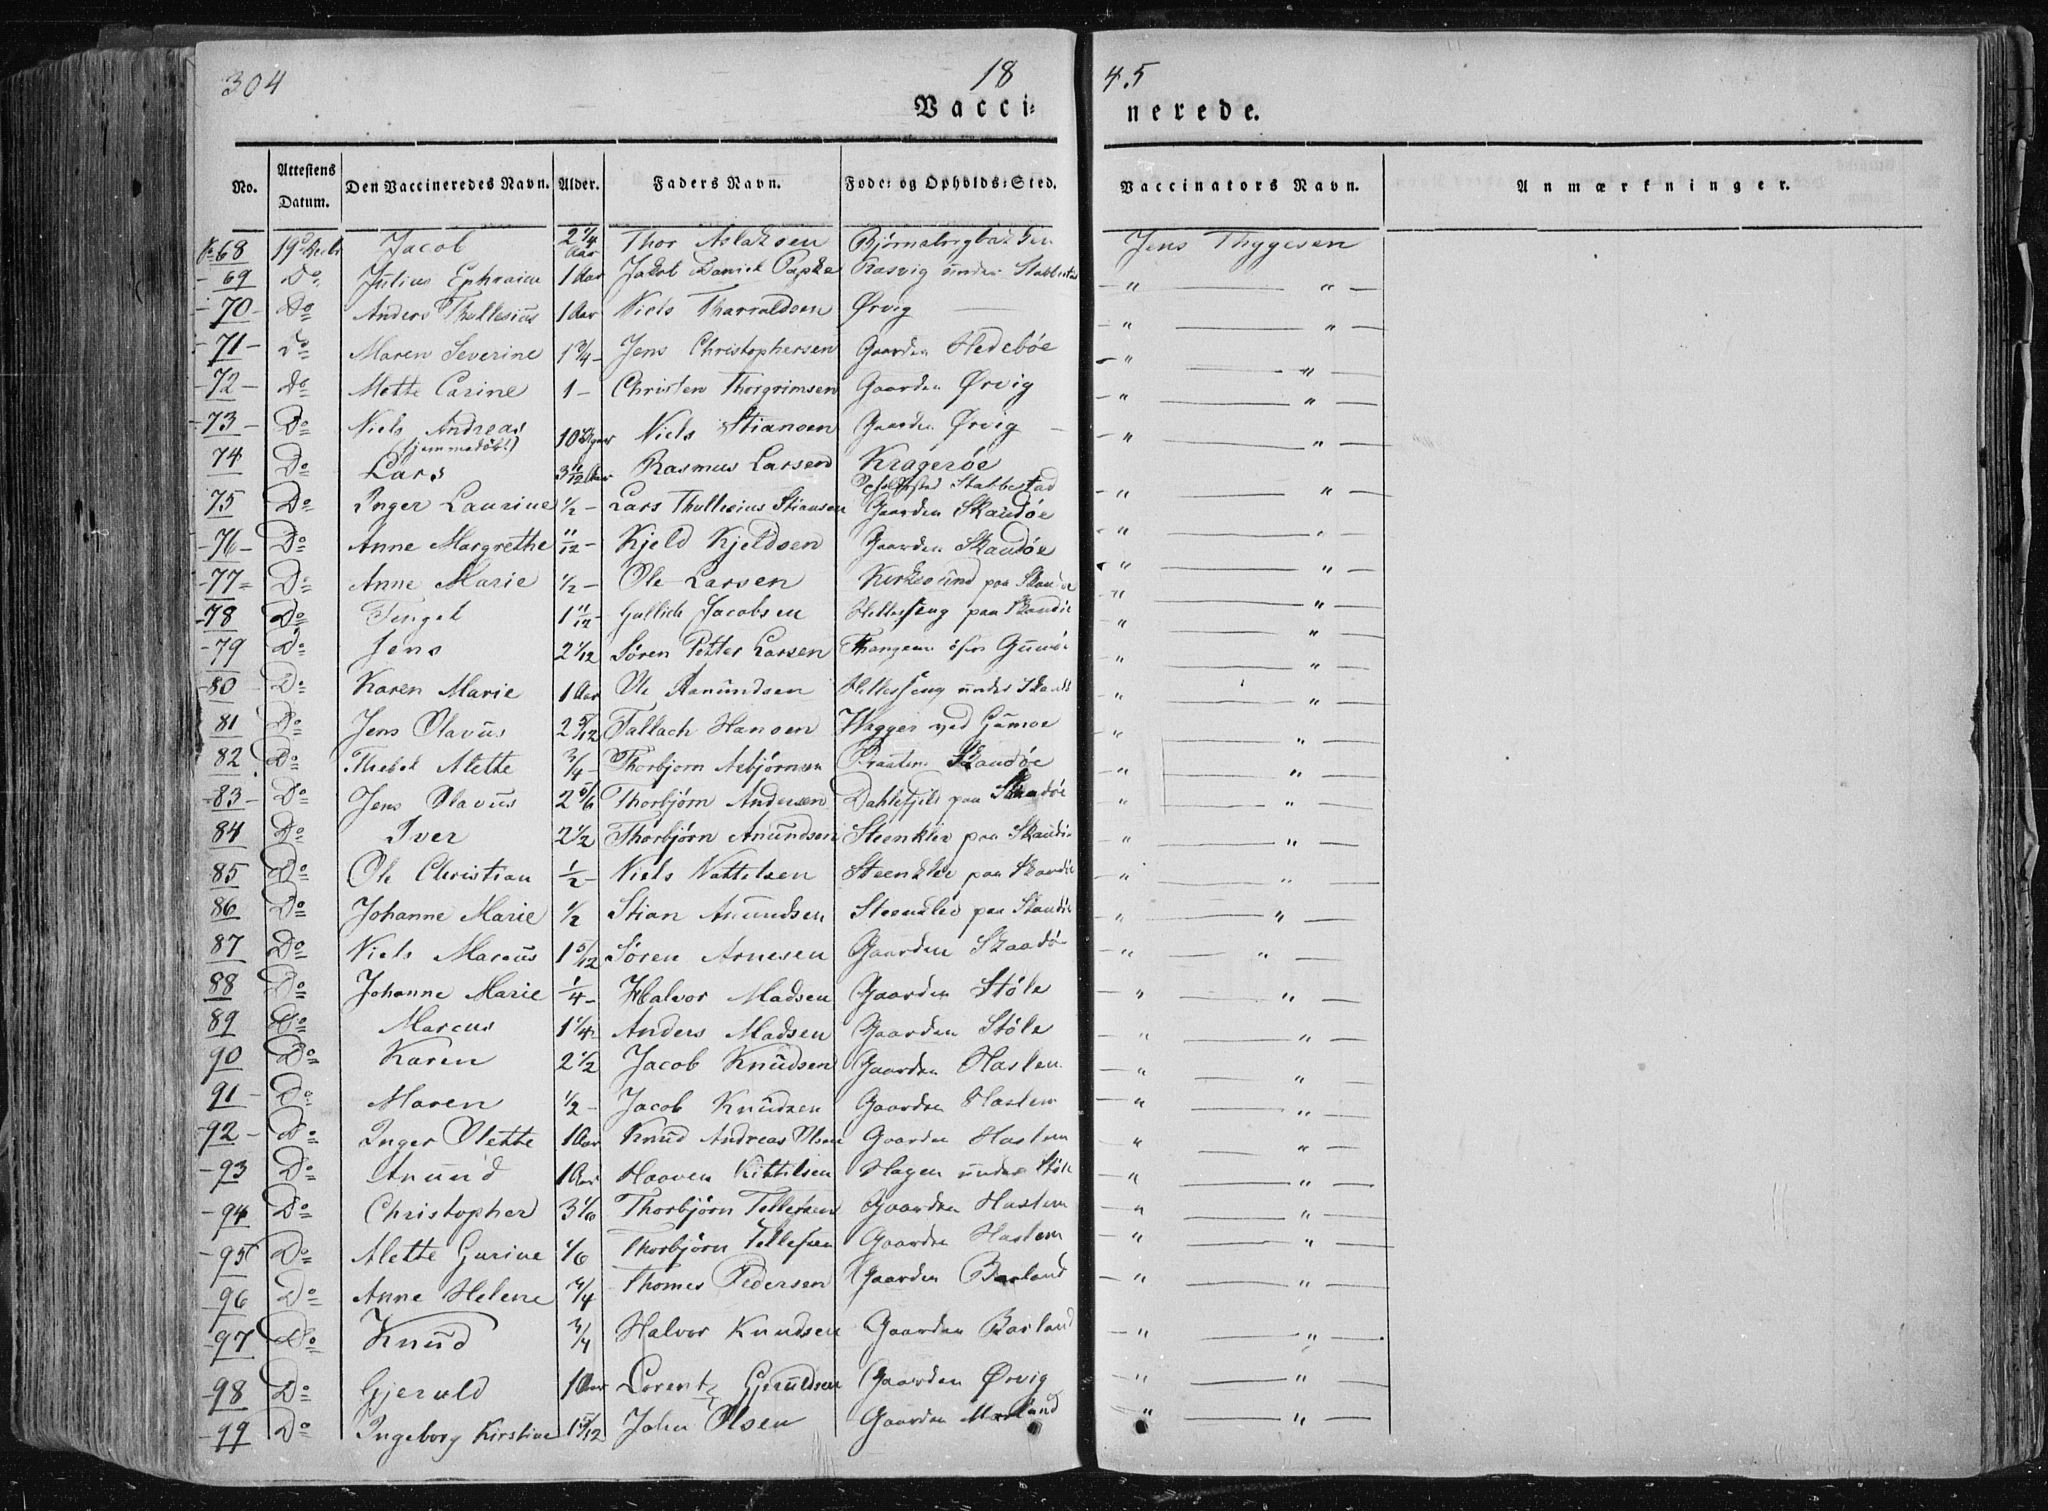 304 18 45
Vacci- nerede.
No. Attestens Datum. Den Vaccineredes Navn. Alder. Faders Navn. Føde- og Opholds-Sted. Vaccinators Navn. Anmærkninger.
68 19de Jacob 2 1/4 Aar Thor Aslaksen Jens Thygesen
- 69 Do Julius Ephraim 1 Aar Jakob Daniel Kasvig under " — " —
- 70 - Do Anders Thollesius 1 Aar Niels Tharraldsen Ørvig — " — " —
- 71 - Do Maren Severine 1 3/4 - Jens Christophersen Gaarden Hedebøe - " — " —
- 72 - Do Mette Carine 1 - Christen Thorgrimsen Gaarden Ørvig — " — " —
- 73 - Do Niels Andreas (hjemmedøbt) 10 Niels Stiansen Gaarden Ørvig — " — " —
74 Do Lars 3 11/12 Aar Rasmus Larsen Kragerøe Opholdssted Stabbestad
75 Do Inger Laurine 1/2 - Lars Thollesius Stiansen Gaarden Skaudøe - " — " —
- 76 - Do Anne Margrethe 11/12 - Kjeld Kjeldsen Gaarden Skaudøe - " — " —
- 77 - Do Anne Marie 1/2 - Ole Larsen Kirkesund paa - " — " —
- 78 Do Tengel 1 11/12 Jacobsen paa Skaudøe — " — " —
- 79 Do Jens 2 1/12 Søren Petter Larsen — " — " —
- 80 - Do Karen Marie 1 Aar Ole Aanundsen under — " — " —
81 Do Jens Olavus 2 5/12 Tallach Hansen ved Gumøe — " — " —
82 Do Alette 3/4 - Thorbjørn Asbjørnsen Skaudøe — " — " —
- 83 - Do Jens Olavus 2 5/6 Thorbjørn Andersen Dahlefjeld paa Skaudøe — " — " —
84 Do Iver 2 1/2 Thorbjørn Anundsen Steenklev paa Skaudøe — " — " —
85 Do Ole Christian 1/2 - Niels Nottelsen Steenklev paa Skaudøe — " — " —
86 Do Johanne Marie 1/2 Stian Anundsen Steenklev paa Skaudøe — " — " —
87 Do Niels Marcus 1 5/12 Søren Arnesen Gaarden Skaadø — " — " —
88 Do Johanne Marie 1/4 - Halvor Madsen Gaarden Støle — " — " —
89 Do Marcus 1 1/4 Anders Madsen Gaarden Støle " — " —
90 Do Karen 2 1/2 Jacob Knudsen Gaarden Haslem — " — " —
91 - Do Maren 1/2 - Jacob Knudsen Gaarden Haslem — " — " —
- 92 - Do Inger Olette 1 Aar Knud Andreas Olsen Gaarden Haslem " — " —
- 93 Do Anund 1 Aar Haaven Kittilsen Hagen under Støle — " — " —
- 94 Do Christopher 3 1/6 Thorbjørn Tellefsen Gaarden Haslem — " — " —
- 95 Do Alette Gurine 1/6 Thorbjørn Tellefsen Gaarden Haslem — " — " —
- 96 Do Anne Helene 3/4 Thomes Pedersen Gaarden Barland — " — " —
- 97 Do Knud 3/4 Halvor Knudsen Gaarden Barland — " — " —
- 98 Do Gjeruld 1 Aar Lorentz Gjeruldsen Gaarden Ørvig — " — " —
- 99 Do Ingeborg Kirstine 1 5/12 John Olsen Gaarden " — " —